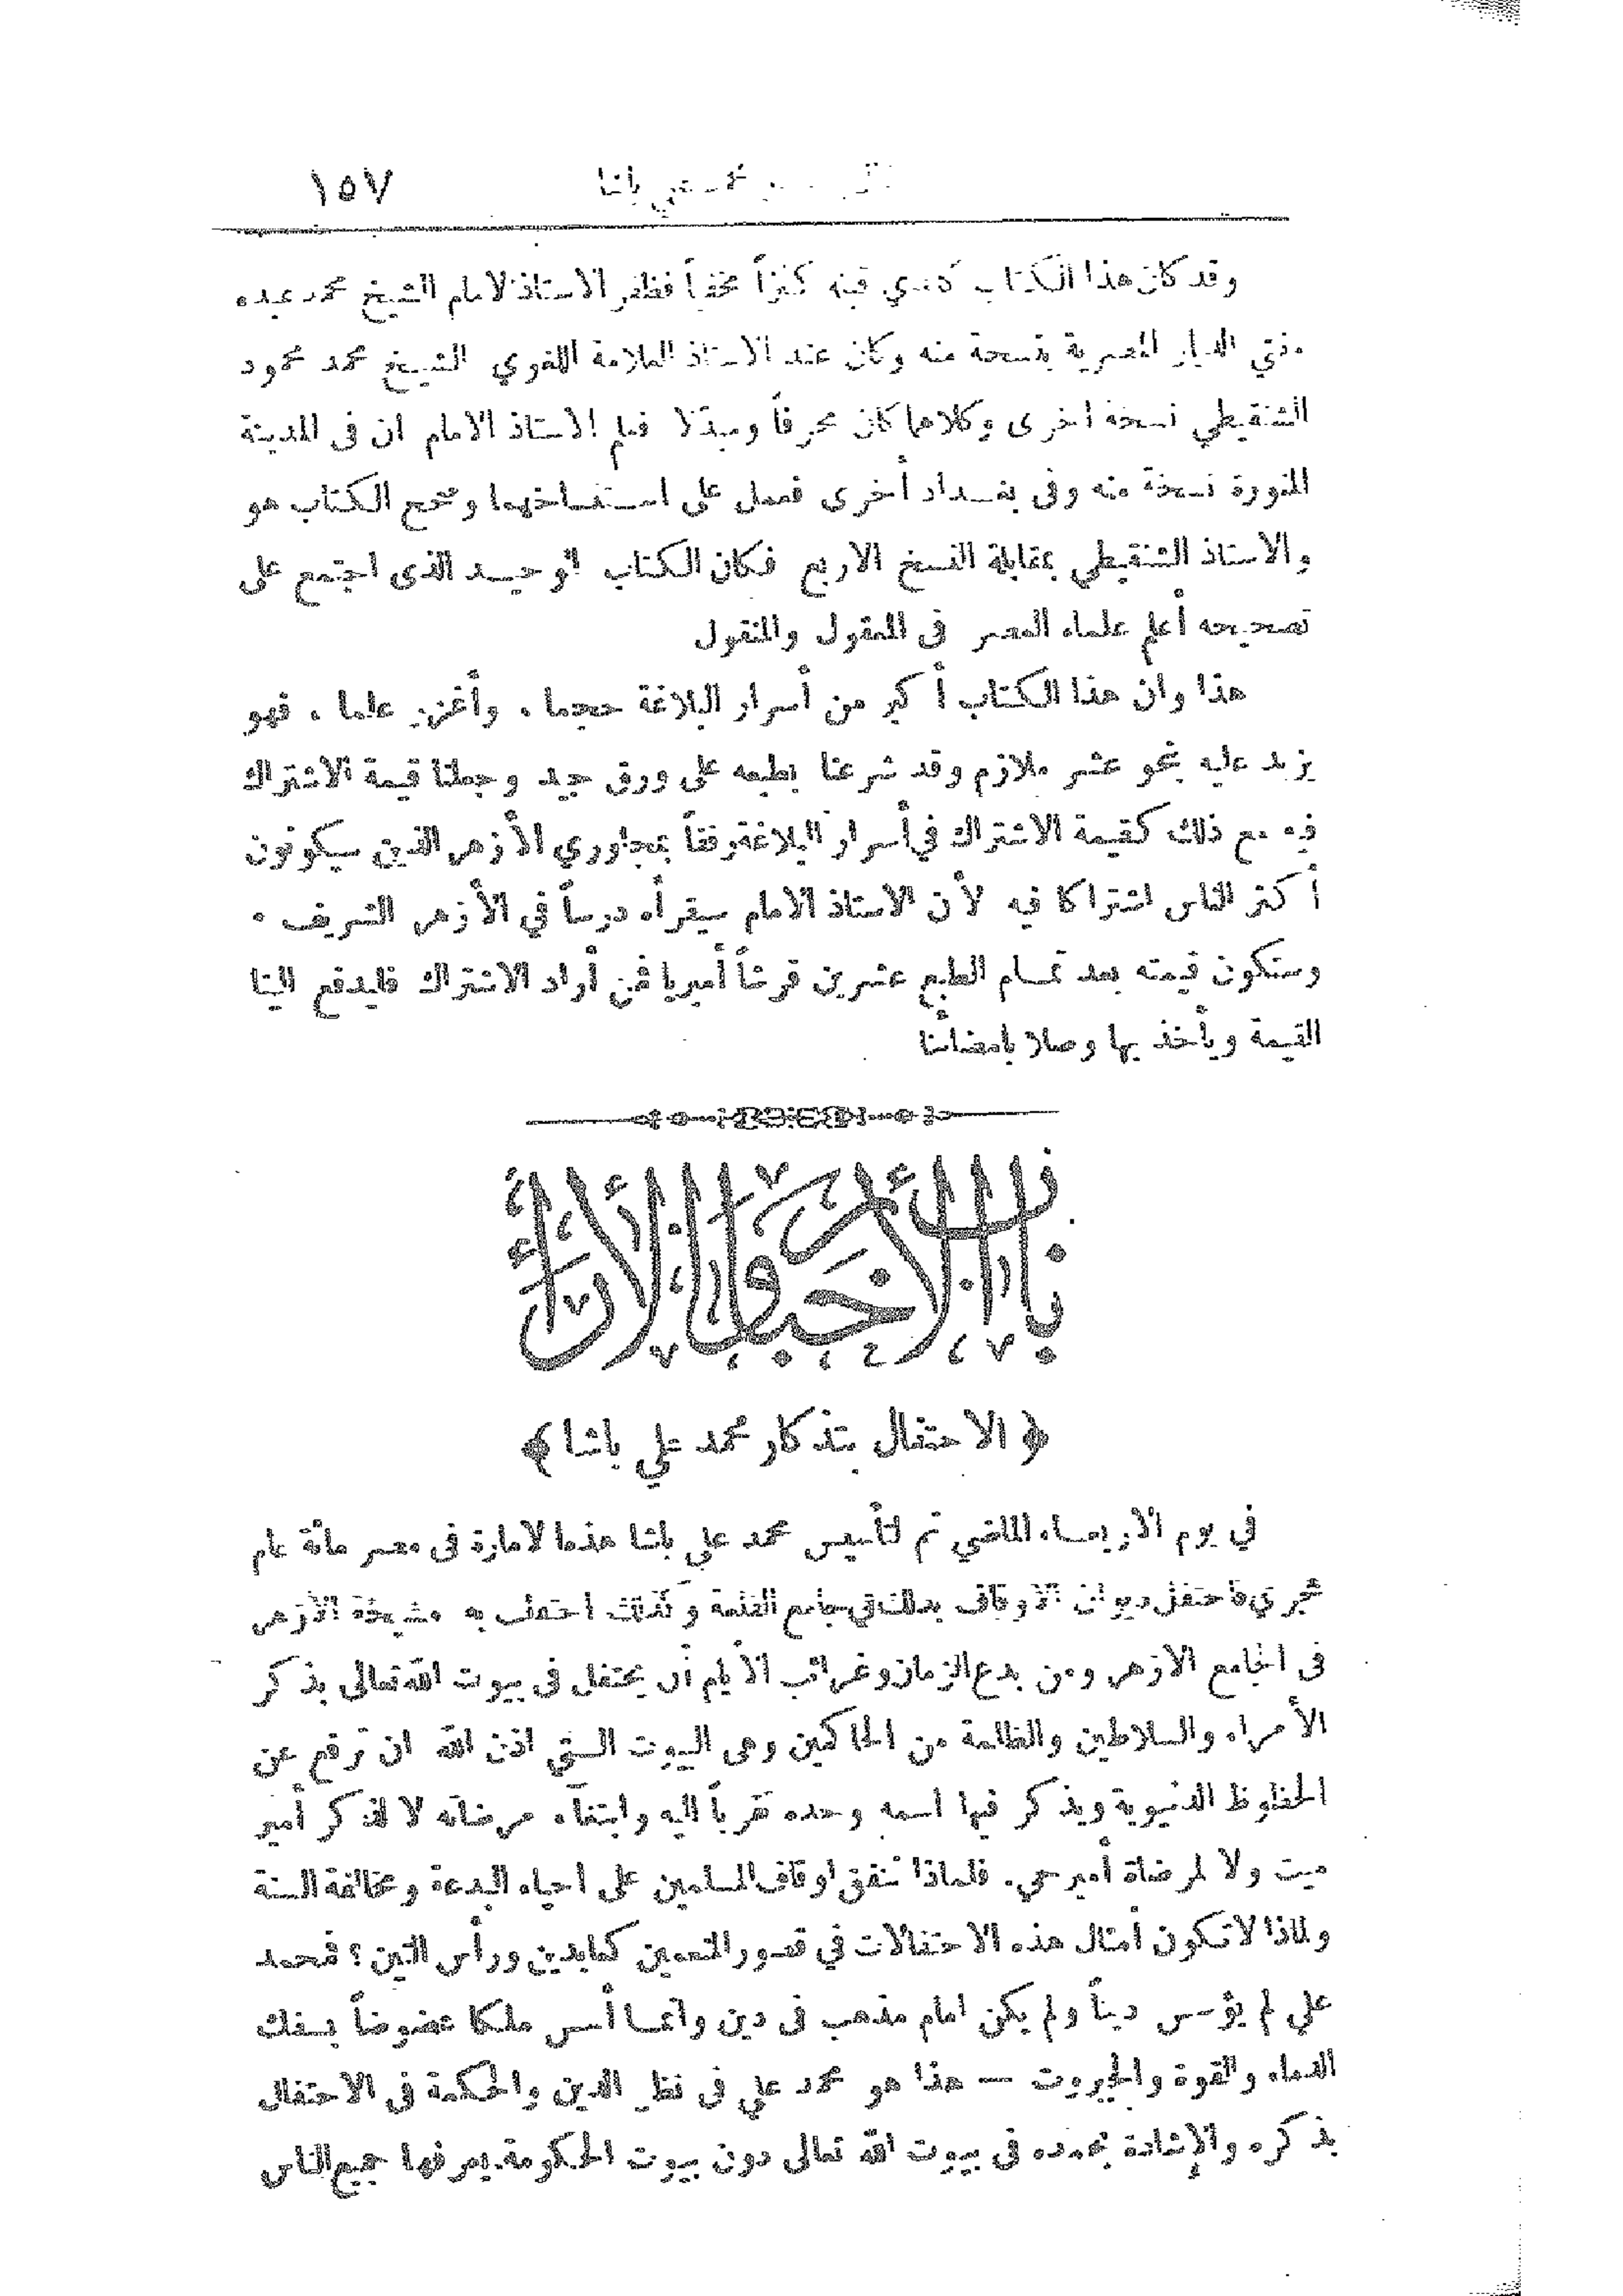 محمد علي باشا ١٥٧
وقد كان هذا الكتاب كنزاً مخفياً فظفر الاستاذ الامام الشيخ محمد عبده
مفتي الديار المصرية بنسخة منه وكان عند الاستاذ العلامة اللغوي الشيخ محمد محمود
الشنقيطي نسخة اخرى وكلاهما كان محرفاً ومبدلا فعلم الاستاذ الامام ان فى المدينة
المنورة نسخة منه وفى بغداد أخرى فعمل على استنساخهما وصحح الكتاب هو
والاستاذ الشنقيطي بمقابلة النسخ الاربع فكان الكتاب الوحيد الذى اجتمع على
تصحيحه أعلم علماء العصر فى المعقول والمنقول
هذا وان هذا الكتاب أكبر من أسرار البلاغة حجما ، وأغزر علما ، فهو
يزيد عليه بنحو عشر ملازم وقد شرعنا بطبعه على ورق جيد وجعلنا قيمة الاشتراك
فيه مع ذلك كقيمة الاشتراك في أسرار البلاغة رفقاً بمجاوري الأزهر الذين سيكونون
أكثر الناس اشتراكا فيه لأن الاستاذ الامام سيقرأه درساً في الأزهر الشريف ٠
وستكون قيمته بعد تمام الطبع عشرين قرشاً أميريا فمن أراد الاشتراك فليدفع الينا
القيمة ويأخذ بها وصلا بامضائنا
باب الأخبار والآراء
﴿ الاحتفال بتذكار محمد علي باشا ﴾
في يوم الاربعاء الماضي تم لتأسيس محمد علي باشا هذه الامارة فى مصر مائة عام
هجري فاحتفل ديوان الاوقاف بذلك في جامع القلعة وكذلك احتفلت به مشيخة الازهر
فى الجامع الازهر ومن بدع الزمان وغرائب الأيام أن يحتفل فى بيوت الله تعالى بذكر
الأمراء والسلاطين والظلمة من الحاكمين وهى البيوت التي اذن الله ان ترفع عن
الحظوظ الدنيوية ويذكر فيها اسمه وحده تقرباً اليه وابتغاء مرضاته لا لذكر أمير
ميت ولا لمرضاة أمير حي. فلماذا تنفق اوقاف المسلمين على احياء البدعة ومخالفة السنة
ولماذا لا تكون أمثال هذه الاحتفالات في قصور المتنعمين كعابدين ورأس التين؟ فمحمد
علي لم يؤسس ديناً ولم يكن امام مذهب فى دين وانما أسس ملكا عضوضاً بسفك
الدماء والقوة والجبروت — هذا هو محمد علي فى نظر الدين والحكمة فى الاحتفال
بذكره والإشادة بحمده فى بيوت الله تعالى دون بيوت الحكومة يعرفها جميع الناس